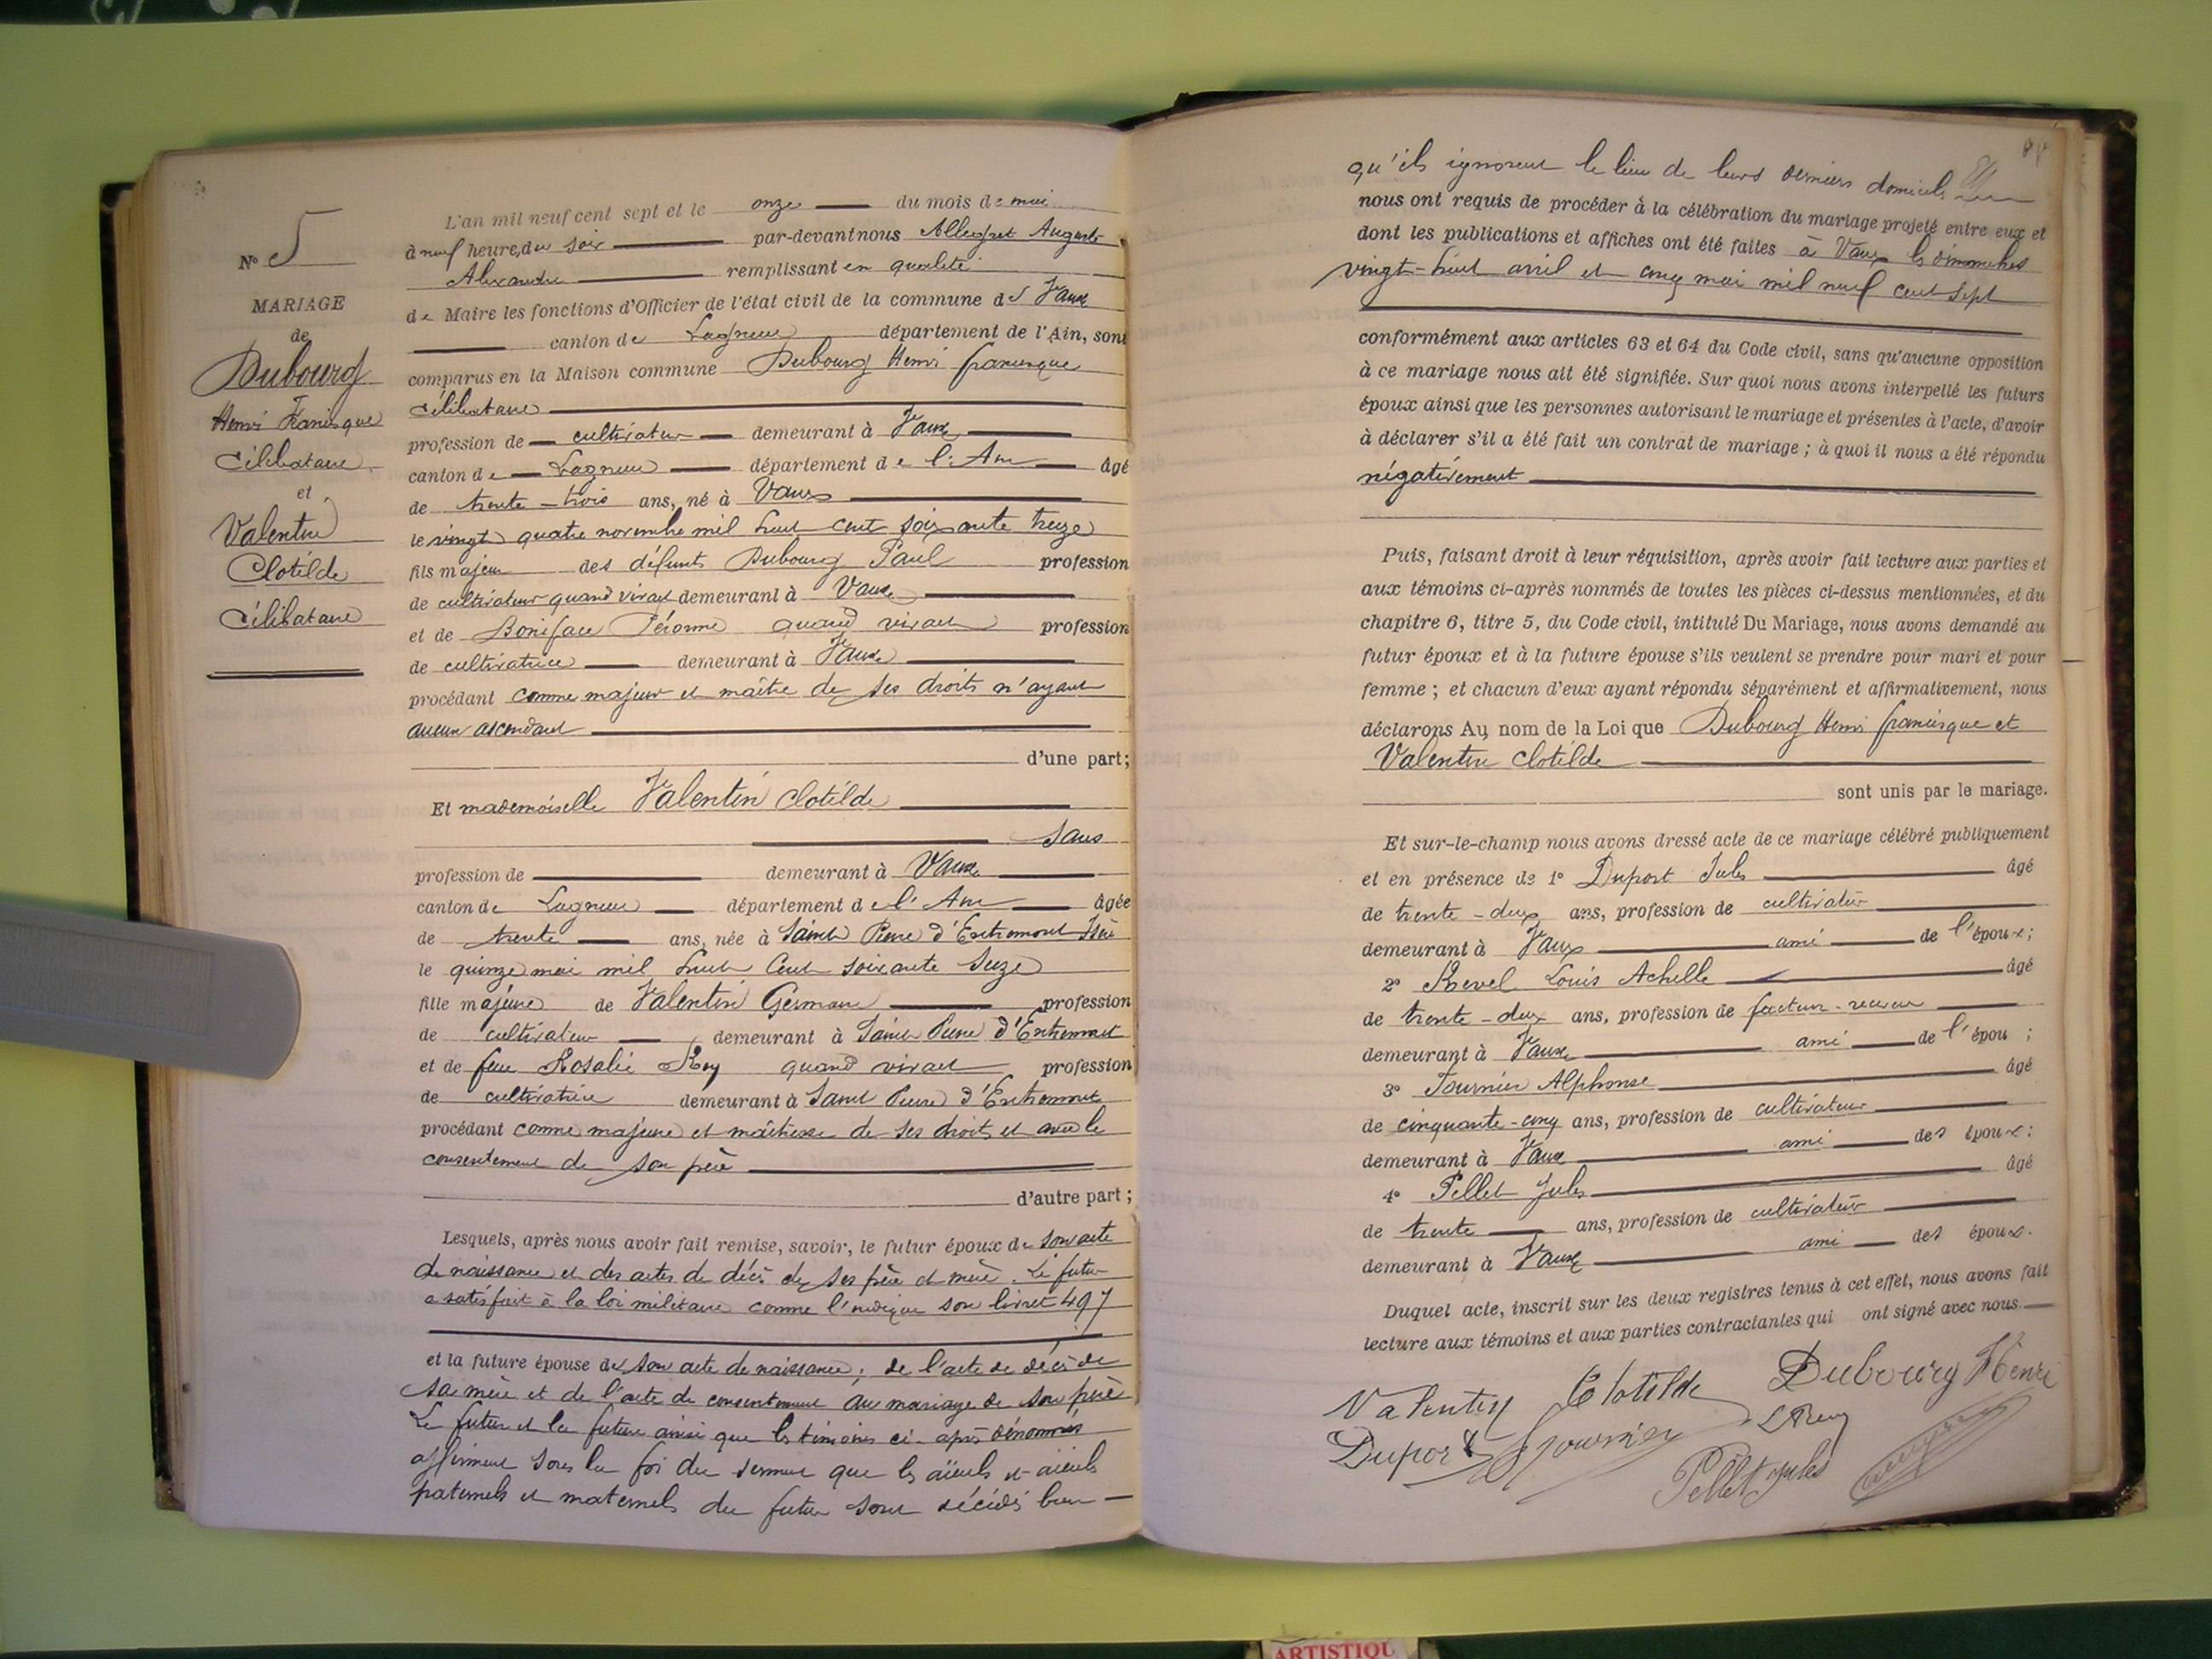 N° 5
MARIAGE
de
Dubourg
Henri Francisque
Célibataire
et
Valentin
Clotilde
Célibataire
L'an mil neuf cent sept et le onze du mois de mai
à neuf heures du soir par-devant nous Allegret Auguste
Alexandre remplissant en qualité
de Maire les fonctions d'Officier de l'état civil de la commune de Vaux
canton de Lagnieu département de l'Ain, sont
comparus en la Maison commune Dubourg Henri francisque
célibataire
profession de cultivateur demeurant à Vaux
canton de Lagnieu département de l'Ain âgé
de trente-trois ans, né à Vaux
le vingt quatre novembre mil huit cent soixante treize
fils majeur des défunts Dubourg Paul profession
de cultivateur quand vivait demeurant à Vaux
et de Boniface quand vivait profession
de cultivatrice demeurant à Vaux
procédant comme majeur et maître de ses droits n'ayant
aucun ascendant
d'une part;
Et mademoiselle Valentin Clotilde
sans
profession de demeurant à Vaux
canton de Lagnieu département de l'Ain âgée
de trente ans, née à Saint Pierre d'Entremont Isère
le quinze mai mil huit cent soixante seize
fille majeure de Valentin Germain profession
de cultivateur demeurant à Saint Pierre d'Entremont
et de feue Rosalie Rey quand vivait profession
de cultivatrice demeurant à Saint Pierre d'Entremont
procédant comme majeure et maîtresse de ses droits et avec le
consentement de son père
d'autre part;
Lesquels, après nous avoir fait remise, savoir, le futur époux de son acte
de naissance et des actes de décès de ses père et mère. Le futur
a satisfait à la loi militaire comme l'indique son livret 497
et la future épouse de son acte de naissance; de l'acte de décès de
sa mère et de l'acte de consentement au mariage de son père
Le futur et la future ainsi que les témoins ci-après dénommés
affirment sous la foi du serment que les aïeuls et aïeules
paternels et maternels du futur sont décédés bien
qu'ils ignorent le lieu de leurs derniers domicile
nous ont requis de procéder à la célébration du mariage projeté entre eux et
dont les publications et affiches ont été faites à Vaux les dimanches
vingt-huit avril et cinq mai mil neuf cent sept
conformément aux articles 63 et 64 du Code civil, sans qu'aucune opposition
à ce mariage nous ait été signifiée. Sur quoi nous avons interpellé les futurs
époux ainsi que les personnes autorisant le mariage et présentes à l'acte, d'avoir
à déclarer s'il a été fait un contrat de mariage ; à quoi il nous a été répondu
négativement
Puis, faisant droit à leur réquisition, après avoir fait lecture aux parties et
aux témoins ci-après nommés de toutes les pièces ci-dessus mentionnées, et du
chapitre 6, titre 5, du Code civil, intitulé Du Mariage, nous avons demandé au
futur époux et à la future épouse s'ils veulent se prendre pour mari et pour
femme ; et chacun d'eux ayant répondu séparément et affirmativement, nous
déclarons Au nom de la Loi que Dubourg Henri francisque et
Valentin Clotilde
sont unis par le mariage.
Et sur-le-champ nous avons dressé acte de ce mariage célébré publiquement
et en présence de 1° Duport Jules âgé
de trente-deux ans, profession de cultivateur
demeurant à Vaux ami de l'époux;
2° Revel Louis Achille âgé
de trente-deux ans, profession de facteur-receveur
demeurant à Vaux ami de l'épou ;
3° Fournier Alphonse âgé
de cinquante-cinq ans, profession de cultivateur
demeurant à Vaux ami des époux;
4° Pellet Jules âgé
de trente ans, profession de cultivateur
demeurant à Vaux ami des époux.
Duquel acte, inscrit sur les deux registres tenus à cet effet, nous avons fait
lecture aux témoins et aux parties contractantes qui ont signé avec nous
Valentin Clotilde Dubourg Henri
Duport Fournier
Pellet Jules
ARTISTIQU